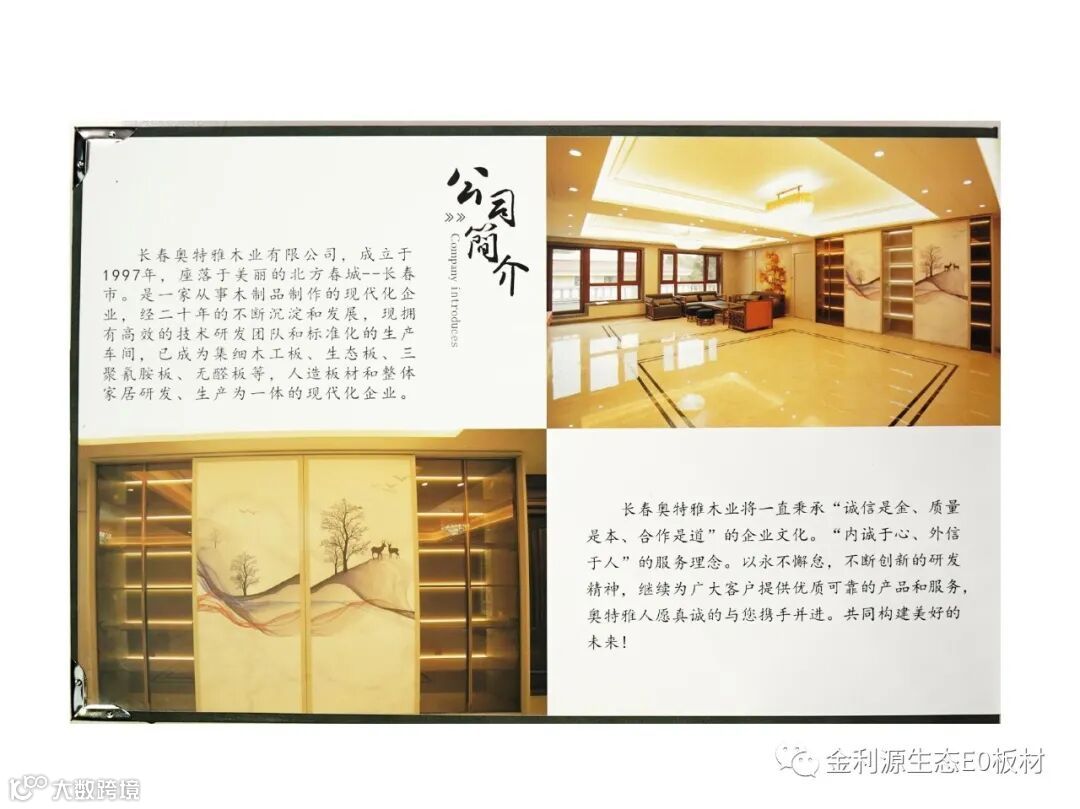 公司
簡介
Company introduces
长春奥特雅木业有限公司，成立于
1997年，座落于美丽的北方春城--长春
市。是一家从事木制品制作的现代化企
业，经二十年的不断沉淀和发展，现拥
有高效的技术研发团队和标准化的生产
车间，已成为集细木工板、生态板、三
聚氰胺板、无醛板等，人造板材和整体
家居研发、生产为一体的现代化企业。
长春奥特雅木业将一直秉承“诚信是金、质量
是本、合作是道”的企业文化。“内诚于心、外信
于人”的服务理念。以永不懈怠，不断创新的研发
精神，继续为广大客户提供优质可靠的产品和服务，
奥特雅人愿真诚的与您携手并进。共同构建美好的
未来！
金利源生态E0板材
大数跨境